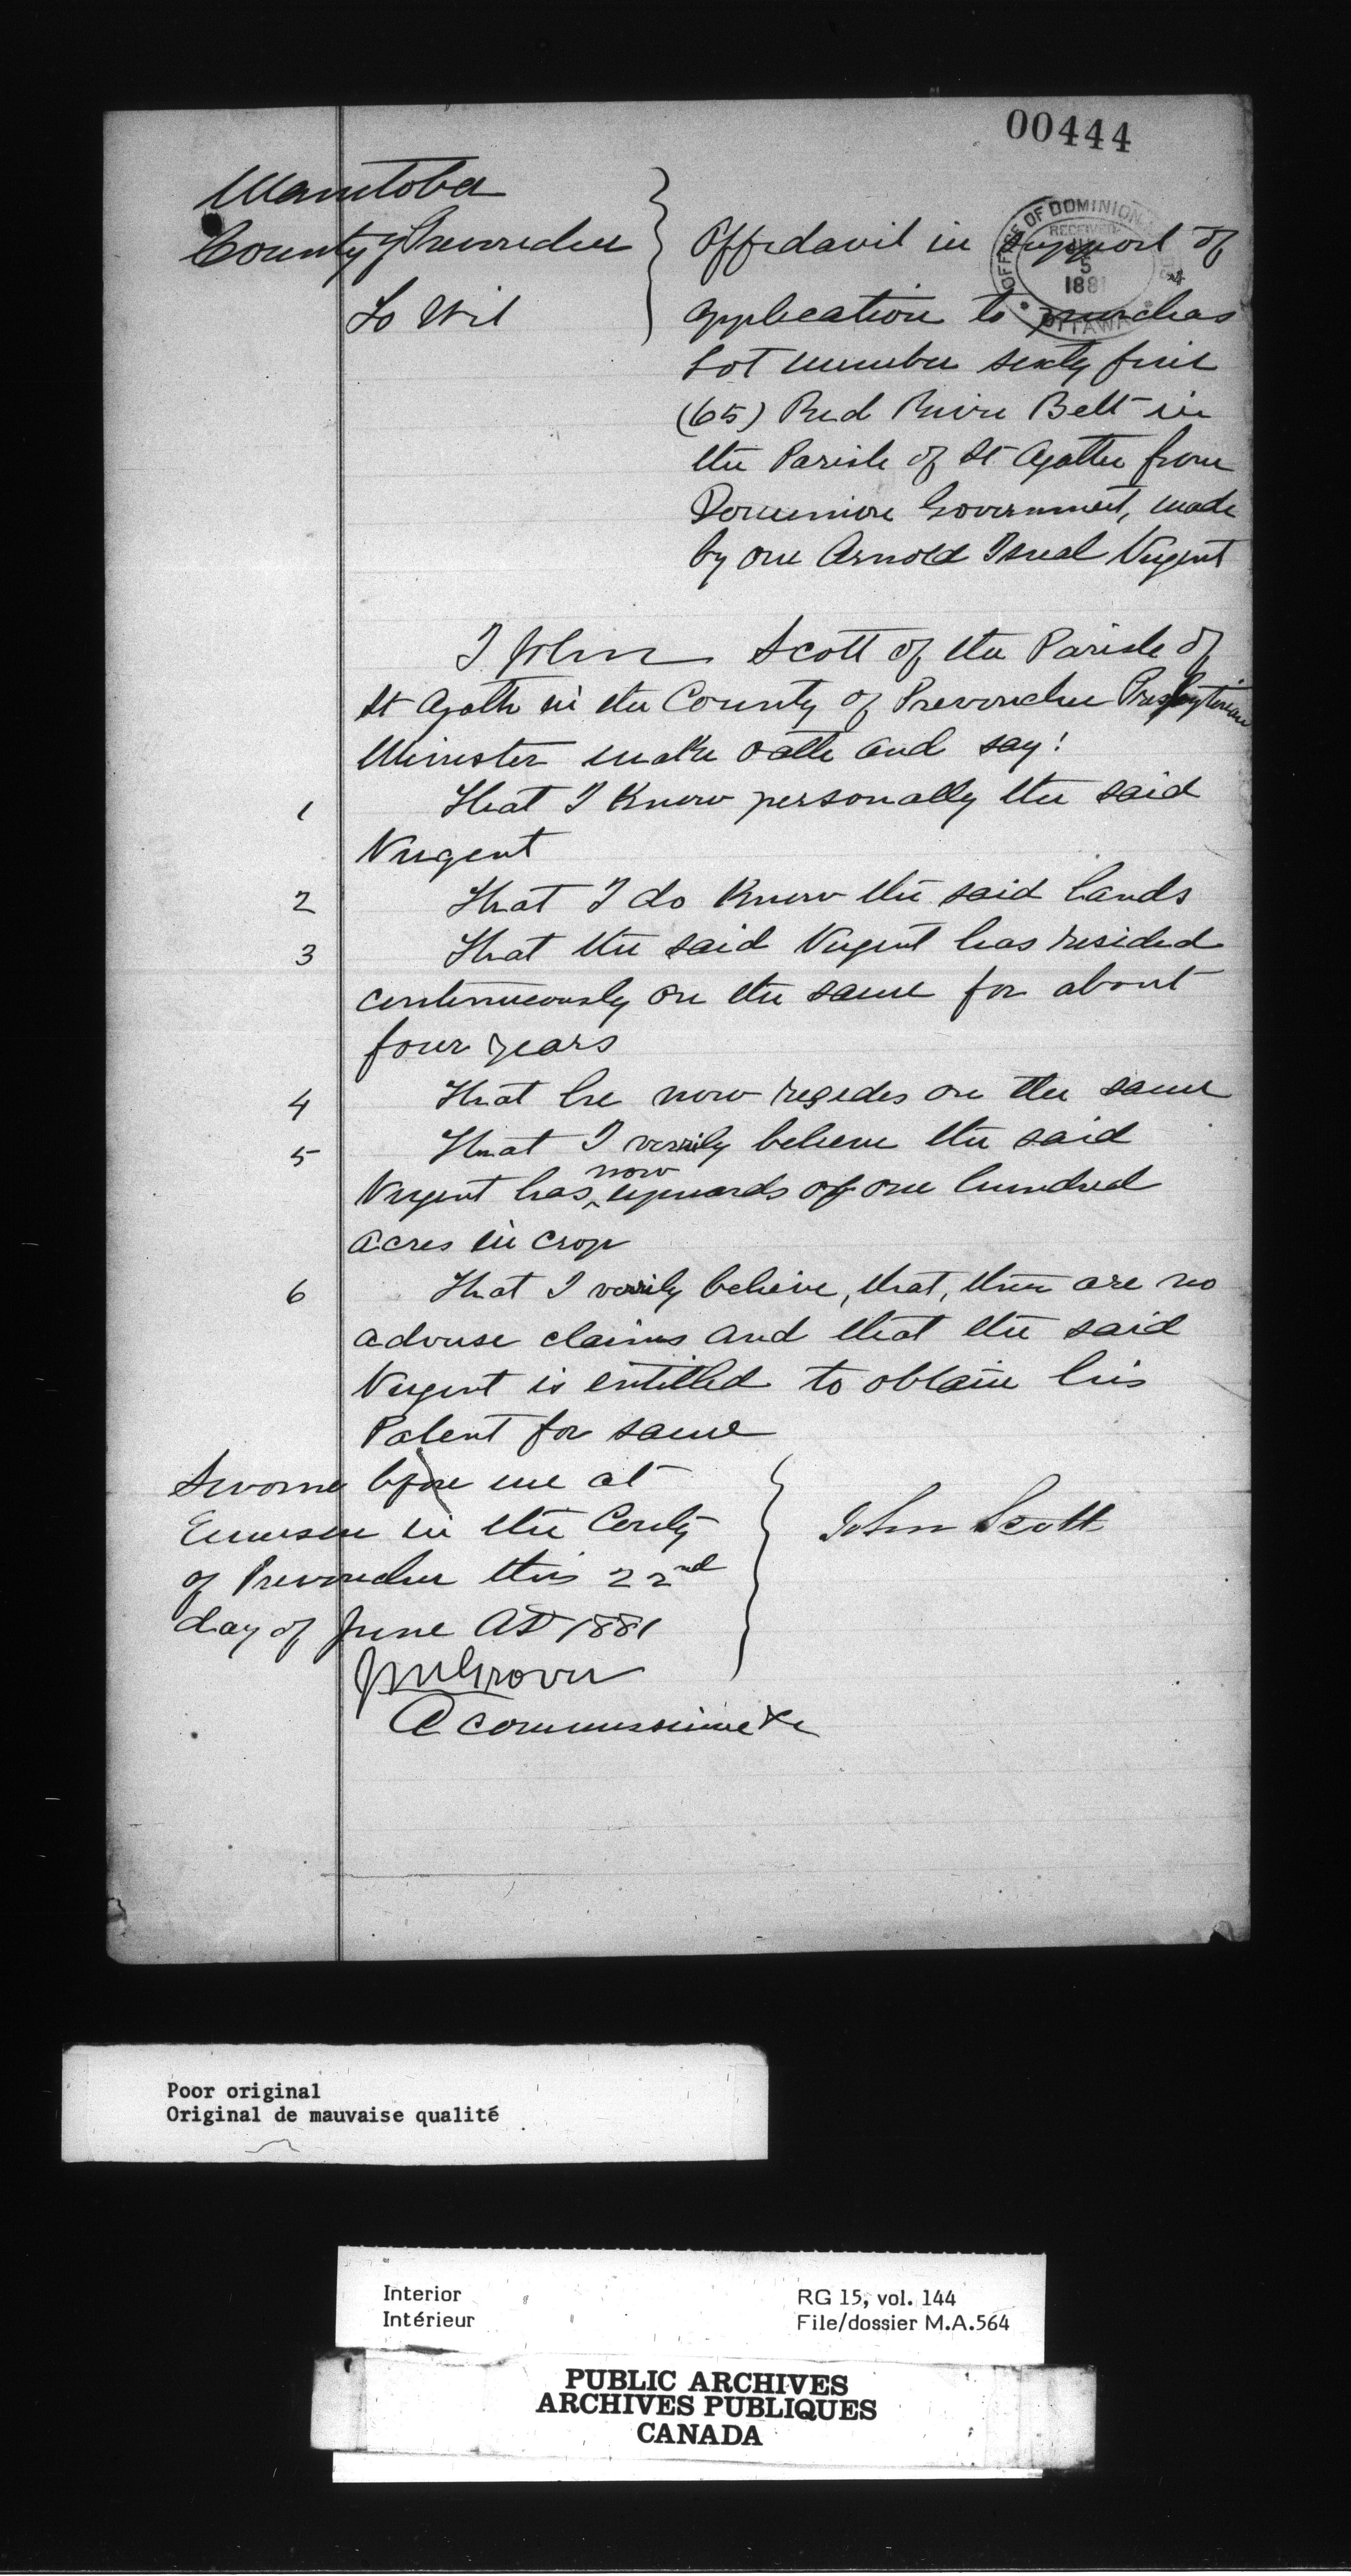 00444
Manitoba
County of Provencher
To Wit
Affidavit in support of
application to purchas
Lot number sixty five
(65) Red River Belt in
the Parish of St Agathe from
Dominion Government, made
by one Arnold Isreal Nugent
OFFICE OF DOMINION
RECEIVED
5
1881
OTTAWA
I John Scott of the Parish of
St Agath in the County of Provencher Presbyterian
Minister make oath and say:
1 That I know personally the said
Nugent
2 That I do know the said lands
3 That the said Nugent has resided
continuously on the same for about
four years
4 That he now resides on the same
5 That I verrily believe the said
Nugent has now upwards of one hundred
acres in crop
6 That I verrily believe, that, there are no
adverse claims and that the said
Nugent is entitled to obtain his
Patent for same
Sworne before me at
Emerson in the County
of Provencher this 22nd
day of June AD 1881
John Scott
A commissioner &c
Poor original
Original de mauvaise qualité
Interior
Intérieur
RG 15, vol. 144
File/dossier M.A.564
PUBLIC ARCHIVES
ARCHIVES PUBLIQUES
CANADA